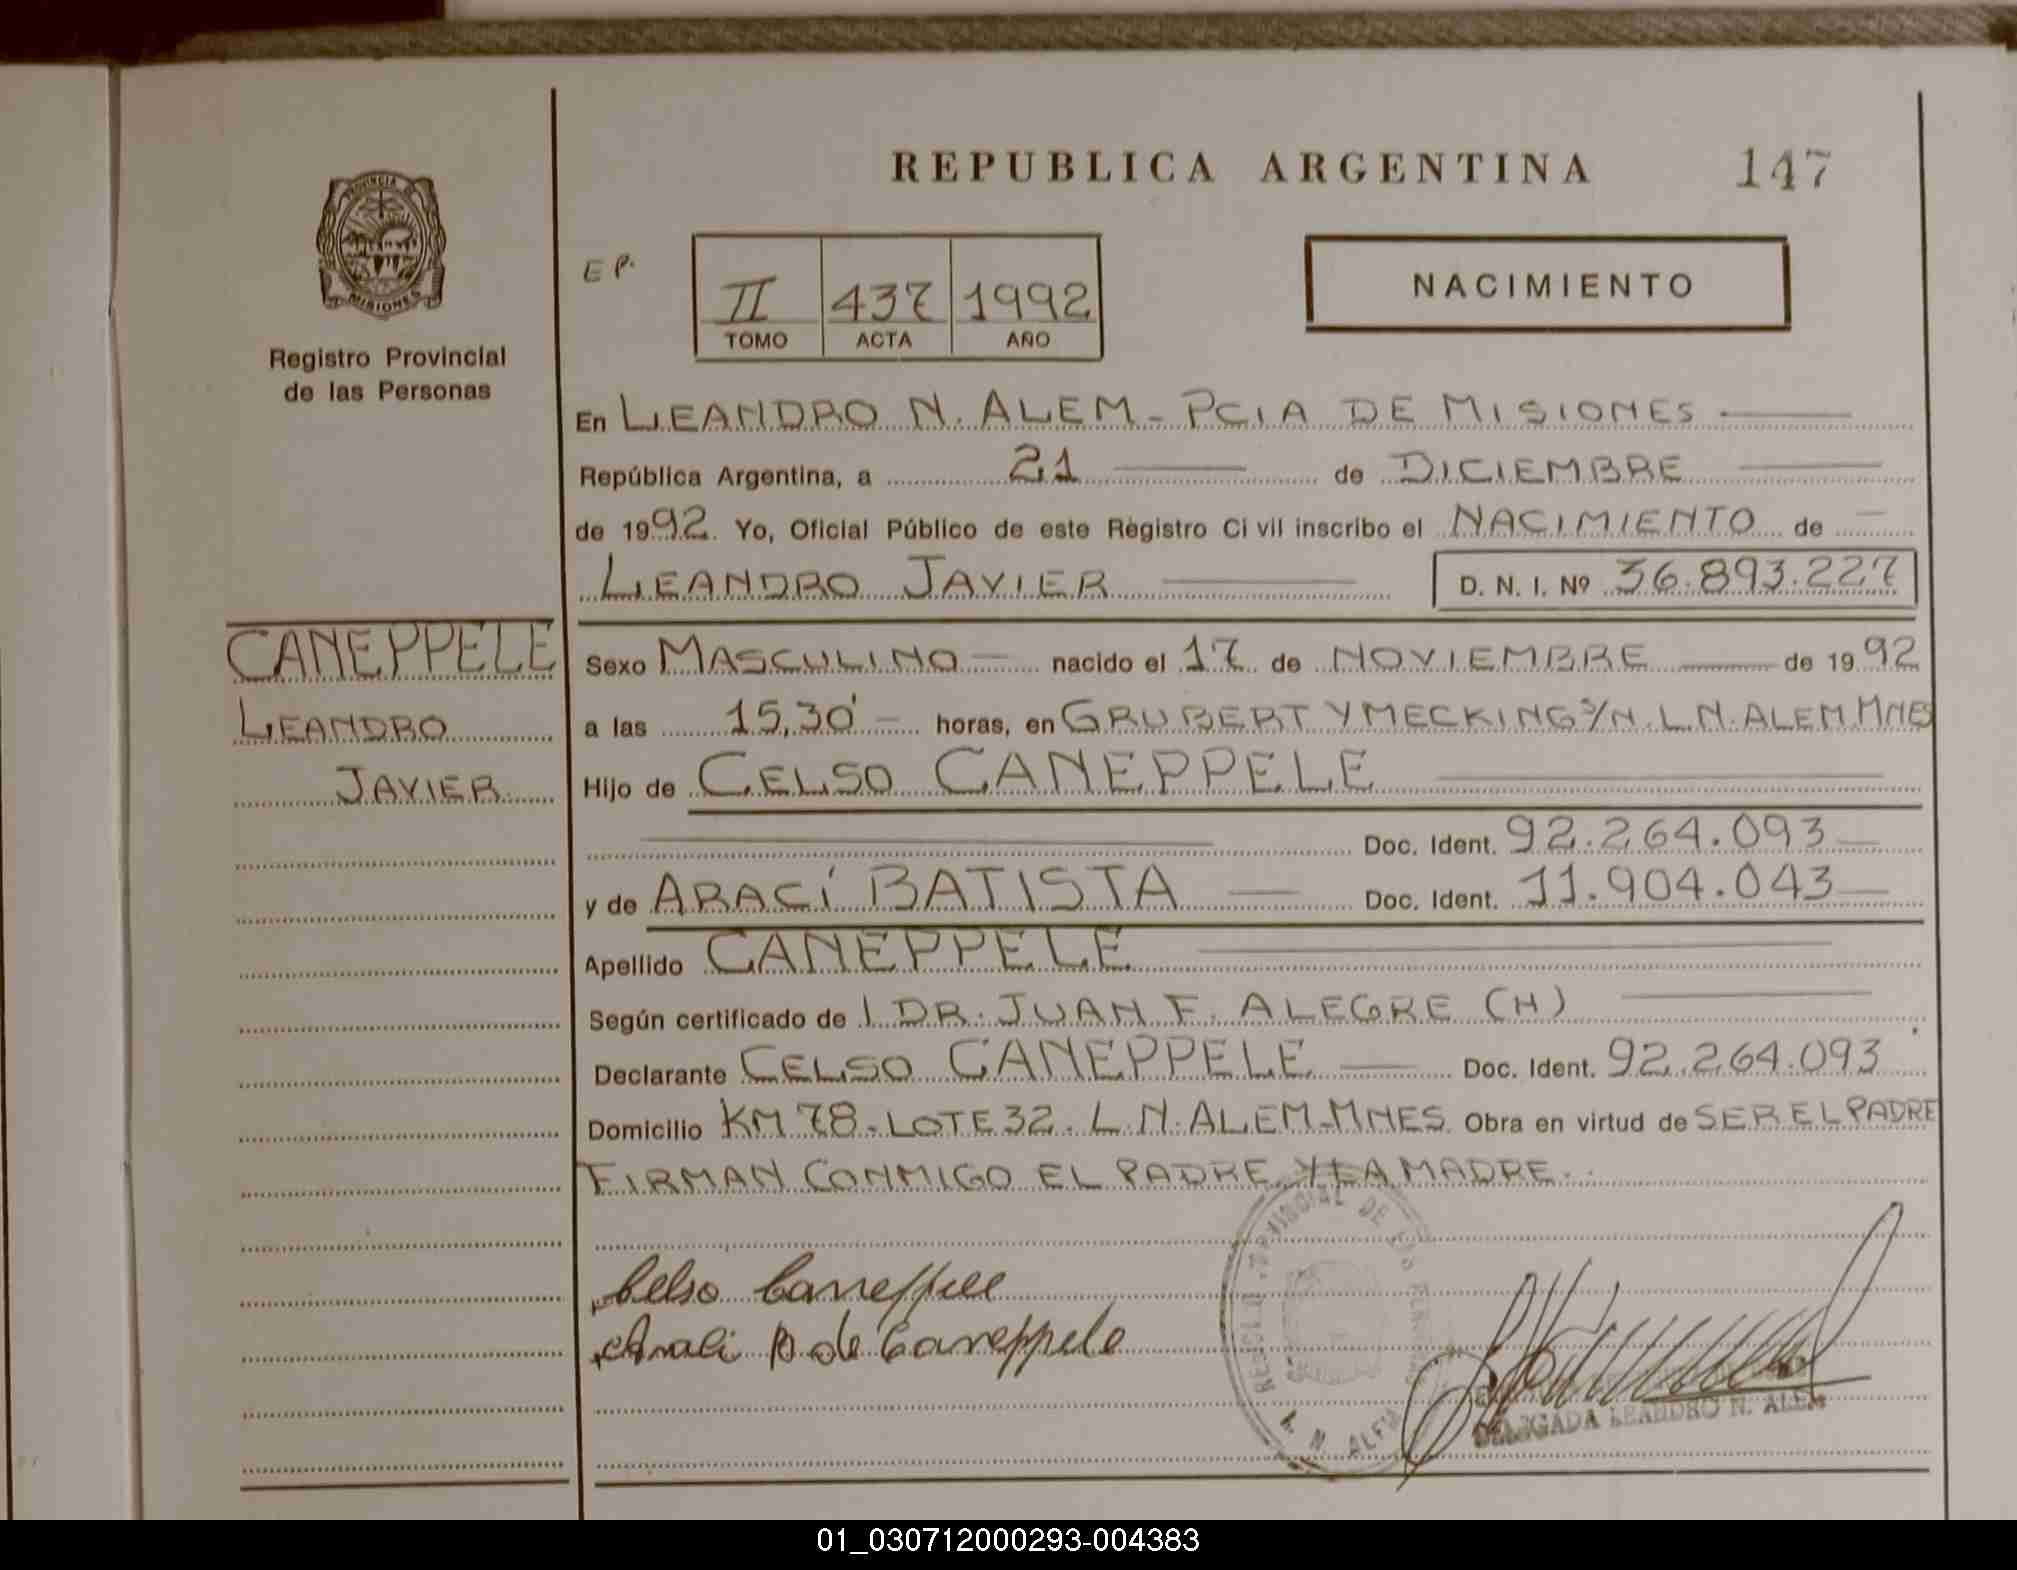 REPUBLICA ARGENTINA 147
PROVINCIA DE MISIONES
Registro Provincial
de las Personas
E P.
II 437 1992
TOMO ACTA AÑO
NACIMIENTO
En LEANDRO N. ALEM - PCIA DE MISIONES
República Argentina, a 21 de DICIEMBRE
de 1992. Yo, Oficial Público de este Registro Civil inscribo el NACIMIENTO de
LEANDRO JAVIER D. N. I. Nº 36.893.227
CANEPPELE
LEANDRO
JAVIER
Sexo MASCULINO nacido el 17 de NOVIEMBRE de 1992
a las 15,30 horas, en GRUBERT Y MECKING S/N. L.N. ALEM. MNES
Hijo de CELSO CANEPPELE
Doc. Ident. 92.264.093
y de ARACÍ BATISTA Doc. Ident. 11.904.043
Apellido CANEPPELE
Según certificado de l DR. JUAN F. ALEGRE (H)
Declarante CELSO CANEPPELE Doc. Ident. 92.264.093
Domicilio KM 78 - LOTE 32. L.N. ALEM - MNES. Obra en virtud de SER EL PADRE
FIRMAN CONMIGO EL PADRE Y LA MADRE.
Celso Caneppele
B de Caneppele
REGISTRO PROVINCIAL DE LAS PERSONAS
L. N. ALEM
DELEGADA LEANDRO N. ALEM
01_030712000293-004383